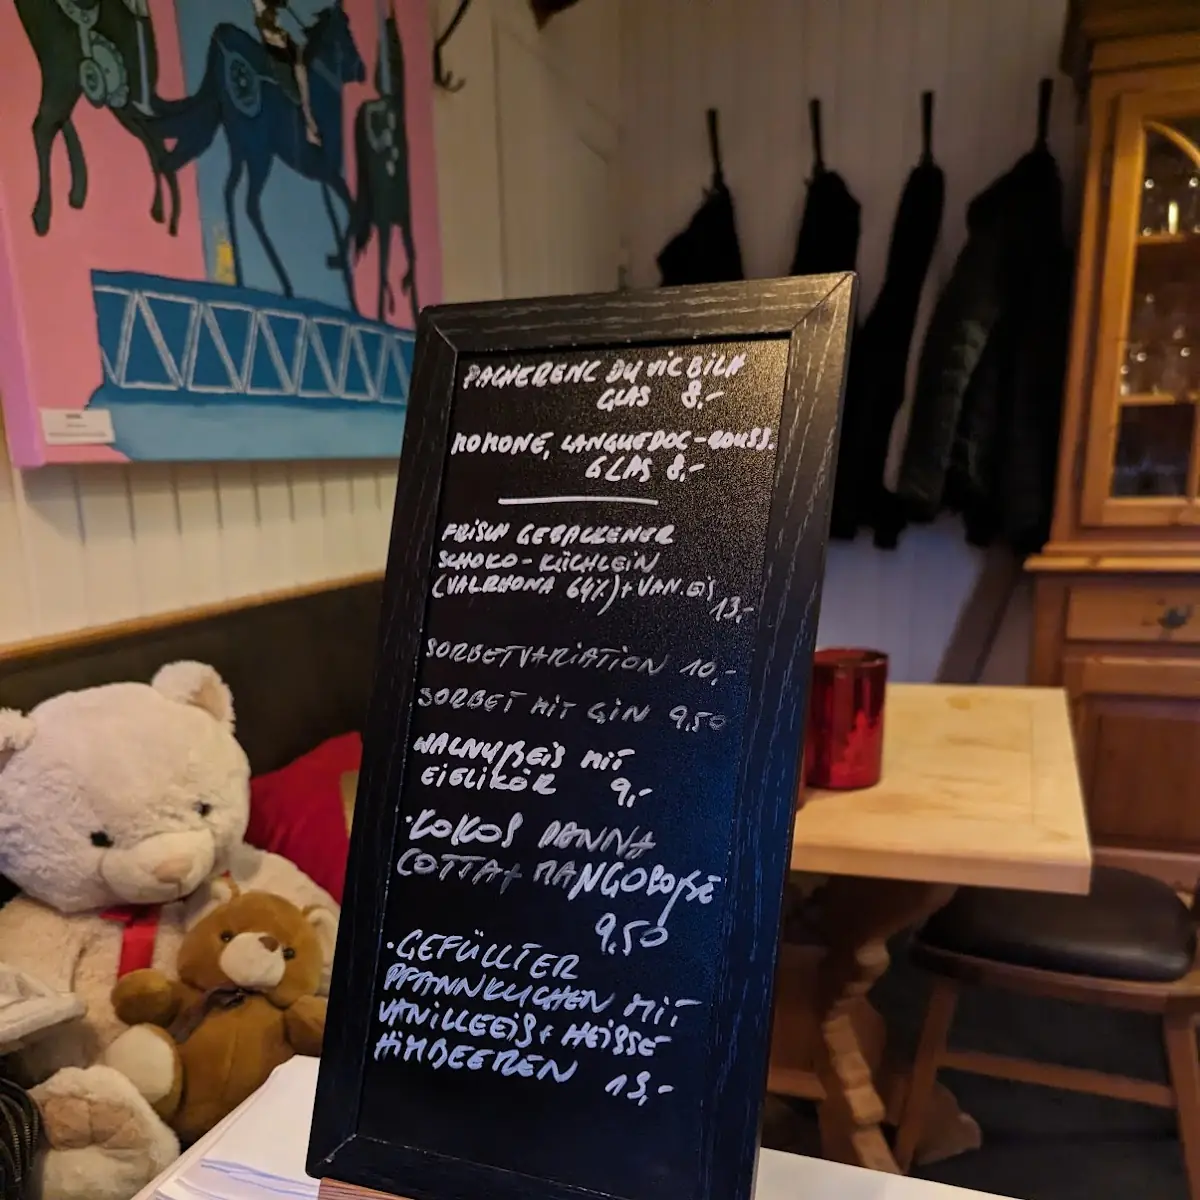 PACHERENC DU VIC BILH
GLAS 8,-
MOMONE, LANGUEDOC-ROUSS.
GLAS 8,-
FRISCH GEBACKENER
SCHOKO-KÜCHLEIN
(VALRHONA 64%) + VAN.EIS
13,-
SORBETVARIATION 10,-
SORBET MIT GIN 9,50
WALNUßEIS MIT
EIERLIKÖR 9,-
·KOKOS PANNA
COTTA + MANGOSOßE
9,50
·GEFÜLLTER
PFANNKUCHEN MIT
VANILLEEIS + HEISSE
HIMBEEREN 13,-